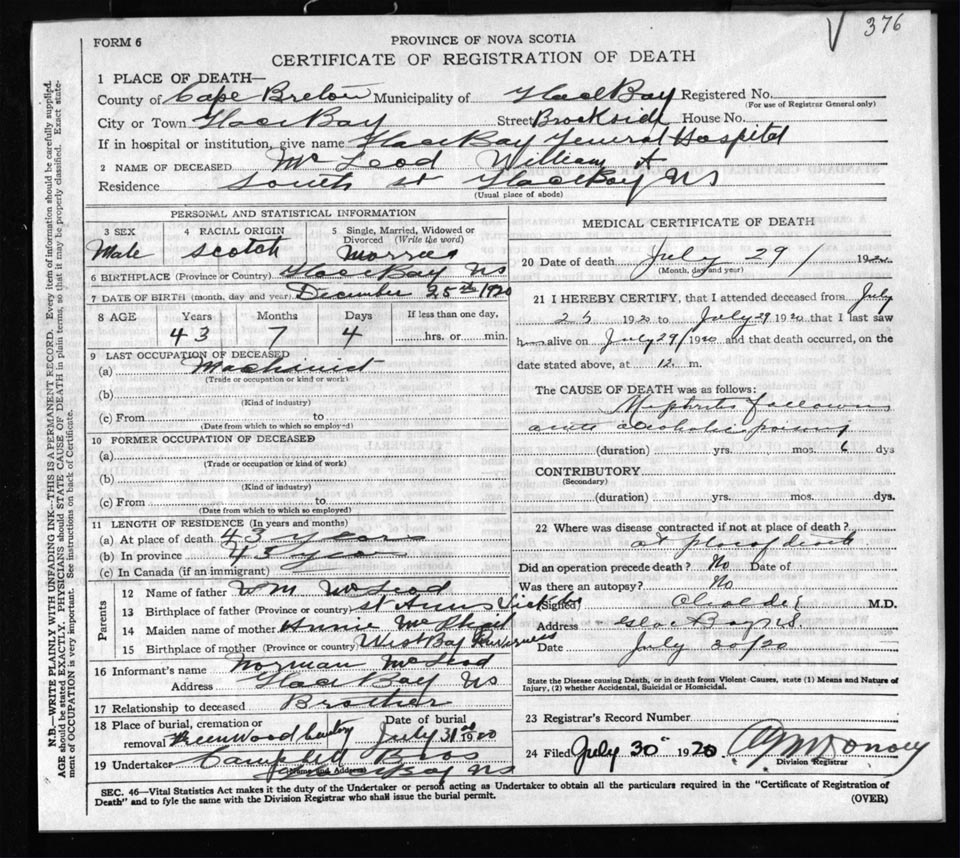 376
FORM 6
PROVINCE OF NOVA SCOTIA
CERTIFICATE OF REGISTRATION OF DEATH
1 PLACE OF DEATH—
County of Cape Breton Municipality of Glace Bay Registered No.
(For use of Registrar General only)
City or Town Glace Bay Street Brookside House No.
If in hospital or institution, give name Glace Bay General Hospital
2 NAME OF DECEASED McLeod William A
Residence South St Glace Bay NS
(Usual place of abode)
PERSONAL AND STATISTICAL INFORMATION
3 SEX 4 RACIAL ORIGIN 5 Single, Married, Widowed or Divorced (Write the word)
Male Scotch Married
6 BIRTHPLACE (Province or Country) Glace Bay NS
7 DATE OF BIRTH (month, day and year) December 25th 1920
8 AGE Years Months Days If less than one day,
43 7 4 hrs. or min.
9 LAST OCCUPATION OF DECEASED
(a) Machinist
(Trade or occupation or kind or work)
(b)
(Kind of industry)
(c) From to
(Date from which to which so employed)
10 FORMER OCCUPATION OF DECEASED
(a)
(Trade or occupation or kind of work)
(b)
(Kind of industry)
(c) From to
(Date from which to which so employed)
11 LENGTH OF RESIDENCE (In years and months)
(a) At place of death 43 years
(b) In province 43 years
(c) In Canada (if an immigrant)
Parents
12 Name of father Wm McLeod
13 Birthplace of father (Province or country) St Anns Victoria
14 Maiden name of mother Annie McPhail
15 Birthplace of mother (Province or country) West Bay Inverness
16 Informant's name Norman McLeod
Address Glace Bay NS
17 Relationship to deceased Brother
18 Place of burial, cremation or removal Greenwood Cemetery Date of burial July 31st 1920
19 Undertaker Campbell Bros
(Name and Address) Glace Bay NS
MEDICAL CERTIFICATE OF DEATH
20 Date of death July 29/ 1920
(Month, day and year)
21 I HEREBY CERTIFY, that I attended deceased from July
25 1920 to July 29 1920 that I last saw
him alive on July 29/1920 and that death occurred, on the
date stated above, at 12 m.
The CAUSE OF DEATH was as follows:
Nephritis following
acute alcoholic poisoning
(duration) yrs. mos. 6 dys
CONTRIBUTORY
(Secondary)
(duration) yrs. mos. dys.
22 Where was disease contracted if not at place of death?
at place of death
Did an operation precede death? No Date of
Was there an autopsy? No
Signed M.D.
Address Glace Bay NS.
Date July 30/20
State the Disease causing Death, or in death from Violent Causes, state (1) Means and Nature of
Injury, (2) whether Accidental, Suicidal or Homicidal.
23 Registrar's Record Number
24 Filed July 30 1920
Division Registrar
SEC. 46—Vital Statistics Act makes it the duty of the Undertaker or person acting as Undertaker to obtain all the particulars required in the "Certificate of Registration of
Death" and to fyle the same with the Division Registrar who shall issue the burial permit.
(OVER)
N.B.—WRITE PLAINLY WITH UNFADING INK—THIS IS A PERMANENT RECORD. Every item of information should be carefully supplied.
AGE should be stated EXACTLY. PHYSICIANS should STATE CAUSE OF DEATH in plain terms, so that it may be properly classified. Exact statement of OCCUPATION is very important. See instructions on back of Certificate.